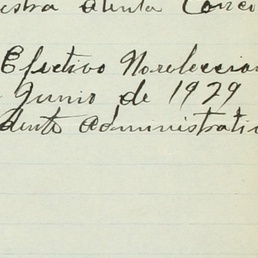 estra Atenta Conco
Efectivo Noreleccion
Junio de 1929
dente Administrativ